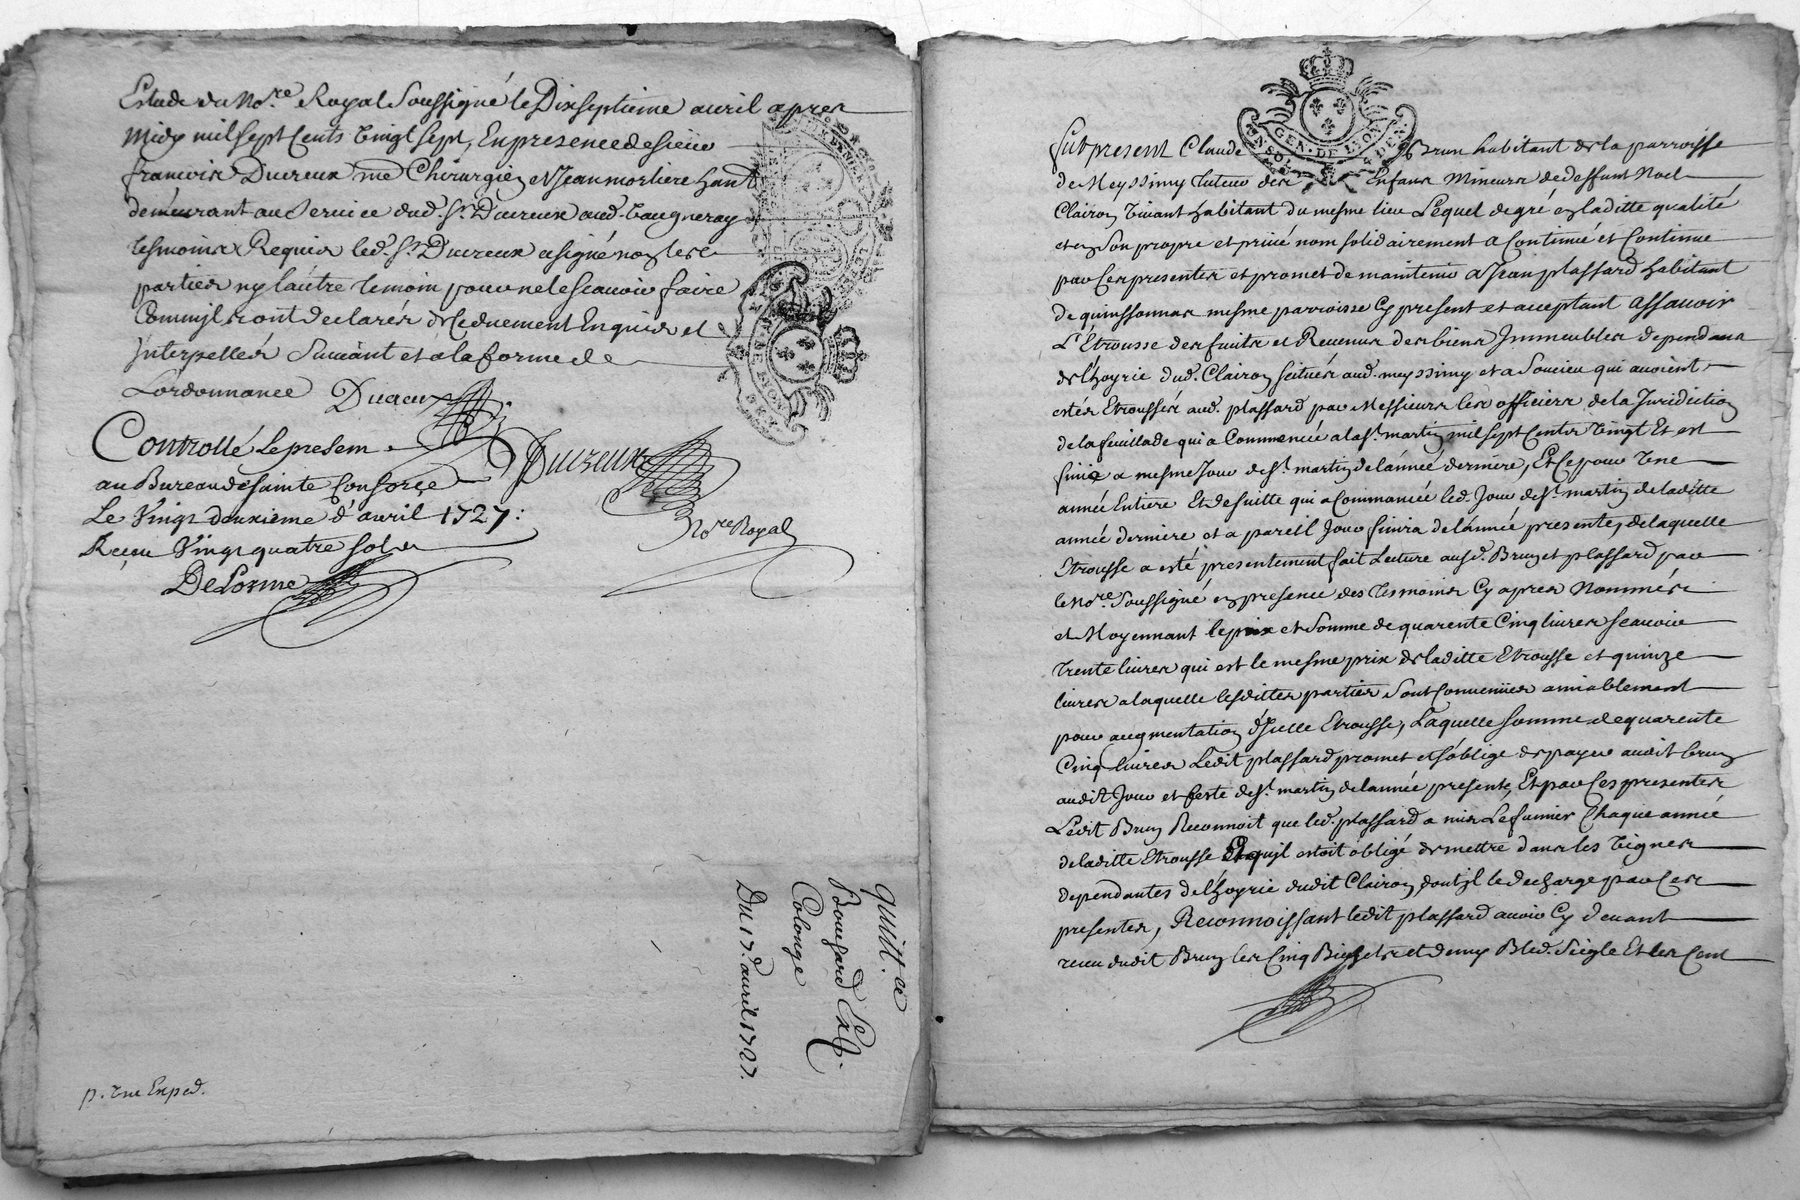 Estude du No.re Royal Soussigné le Dixseptieme avril apres
Midy mil sept Cents Vingt sept, En presence de sieur
francois Ducreux me Chirurgien et Jean mortiere hant
demeurant au service dud. Sr. Ducreux aud. Vaugneray
tesmoins Requis led. Sr. Ducreux a signé non les
parties ny l'autre temoin pour ne le scauoir faire
Comm'jls ont declarés de Ce duement Enquis et
Interpellés Suivant et a la forme de
L'ordonnance Ducreux
Controllé le presem
au Bureau de sainte Consorce
Le Vingt deuxieme d'avril 1727:
Receu Vingt quatre sols
DeLorme
Ducreux
No.re Royal
quitt.ce
Bougard
Colonge
Du 17.e avril 1727.
p. Vne Exped.
GEN. DE LYON
Fut present Claude Brun habitant de la parroisse
de Meyssimy tuteur des Enfans Mineurs de deffunt Noel
Clairon Vivant habitant du mesme lieu Lequel de gré en laditte qualité
et en Son propre et privé nom solidairement a Continué et Continue
par Ces presentes et promet de maintenir a Jean plassard habitant
de quinssonnas mesme parroisse Cy present et acceptant assauoir
L'Etrousse des fruits et Revenus des biens Immeubles dependans
de l'hoyrie dud. Clairon scitués aud. meyssimy et a Soucieu qui auoient
estés Etroussés aud. plassard par Messieurs les officiers de la Juridiction
de la feuillade qui a Commencé a la St. martin mil sept Cents Vingt Et est
finie a mesme Jour de St. martin de l'année derniere, Et Ce pour Vne
année Entiere Et de suitte qui a Commancé led. Jour de St. martin de laditte
année derniere et a pareil Jour finira de l'année presente, de laquelle
Etrousse a esté presentement fait Lecture ausd. Brun et plassard par
le No.re Soussigné en presence des tesmoins Cy apres Nommés
et Moyennant le prix et Somme de quarente Cinq livres scauoir
trente livres qui est le mesme prix de laditte Etrousse et quinze
livres a laquelle lesdittes parties Sont Conuenües amiablement
pour augmentation d'Jcelle Etrousse, Laquelle Somme de quarente
Cinq livres Ledit plassard promet et s'oblige de payer audit brun
audit Jour et feste de St. martin de l'année presente, Et par Ces presentes
Ledit Brun Reconnoit que led. plassard a mis Le fumier Chaque année
de laditte Etrousse qu'jl estoit obligé de mettre dans les Vignes
dependantes de l'hoyrie dudit Clairon dont jl le decharge par Ces
presentes, Reconnoissant ledit plassard avoir Cy deuant
receu dudit Brun les Cinq Bichets et demy Bled. Siegle Et les Cent